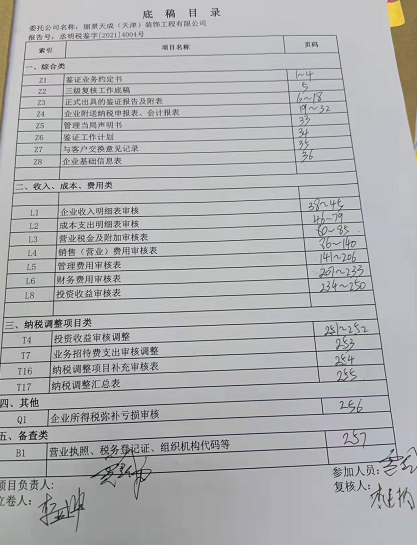 底稿目录
委托公司名称：丽景天成（天津）装饰工程有限公司
报告号：丞明税鉴字[2021]4004号
索引 项目名称 页码
一、综合类
Z1 鉴证业务约定书 1~4
Z2 三级复核工作底稿 5
Z3 正式出具的鉴证报告及附表 6~18
Z4 企业附送纳税申报表、会计报表 19~32
Z5 管理当局声明书 33
Z6 鉴证工作计划 34
Z7 与客户交换意见记录 35
Z8 企业基础信息表 36
二、收入、成本、费用类
L1 企业收入明细表审核 38~45
L2 成本支出明细表审核 46~79
L3 营业税金及附加审核表 80~85
L4 销售（营业）费用审核表 86~140
L5 管理费用审核表 141~206
L6 财务费用审核表 207~233
L8 投资收益审核 234~250
三、纳税调整项目类
T4 投资收益审核调整 251~252
T7 业务招待费支出审核调整 253
T16 纳税调整项目补充审核表 254
T17 纳税调整汇总表 255
四、其他
Q1 企业所得税弥补亏损审核 256
五、备查类
B1 营业执照、税务登记证、组织机构代码等 257
项目负责人： 参加人员：
立卷人： 复核人：